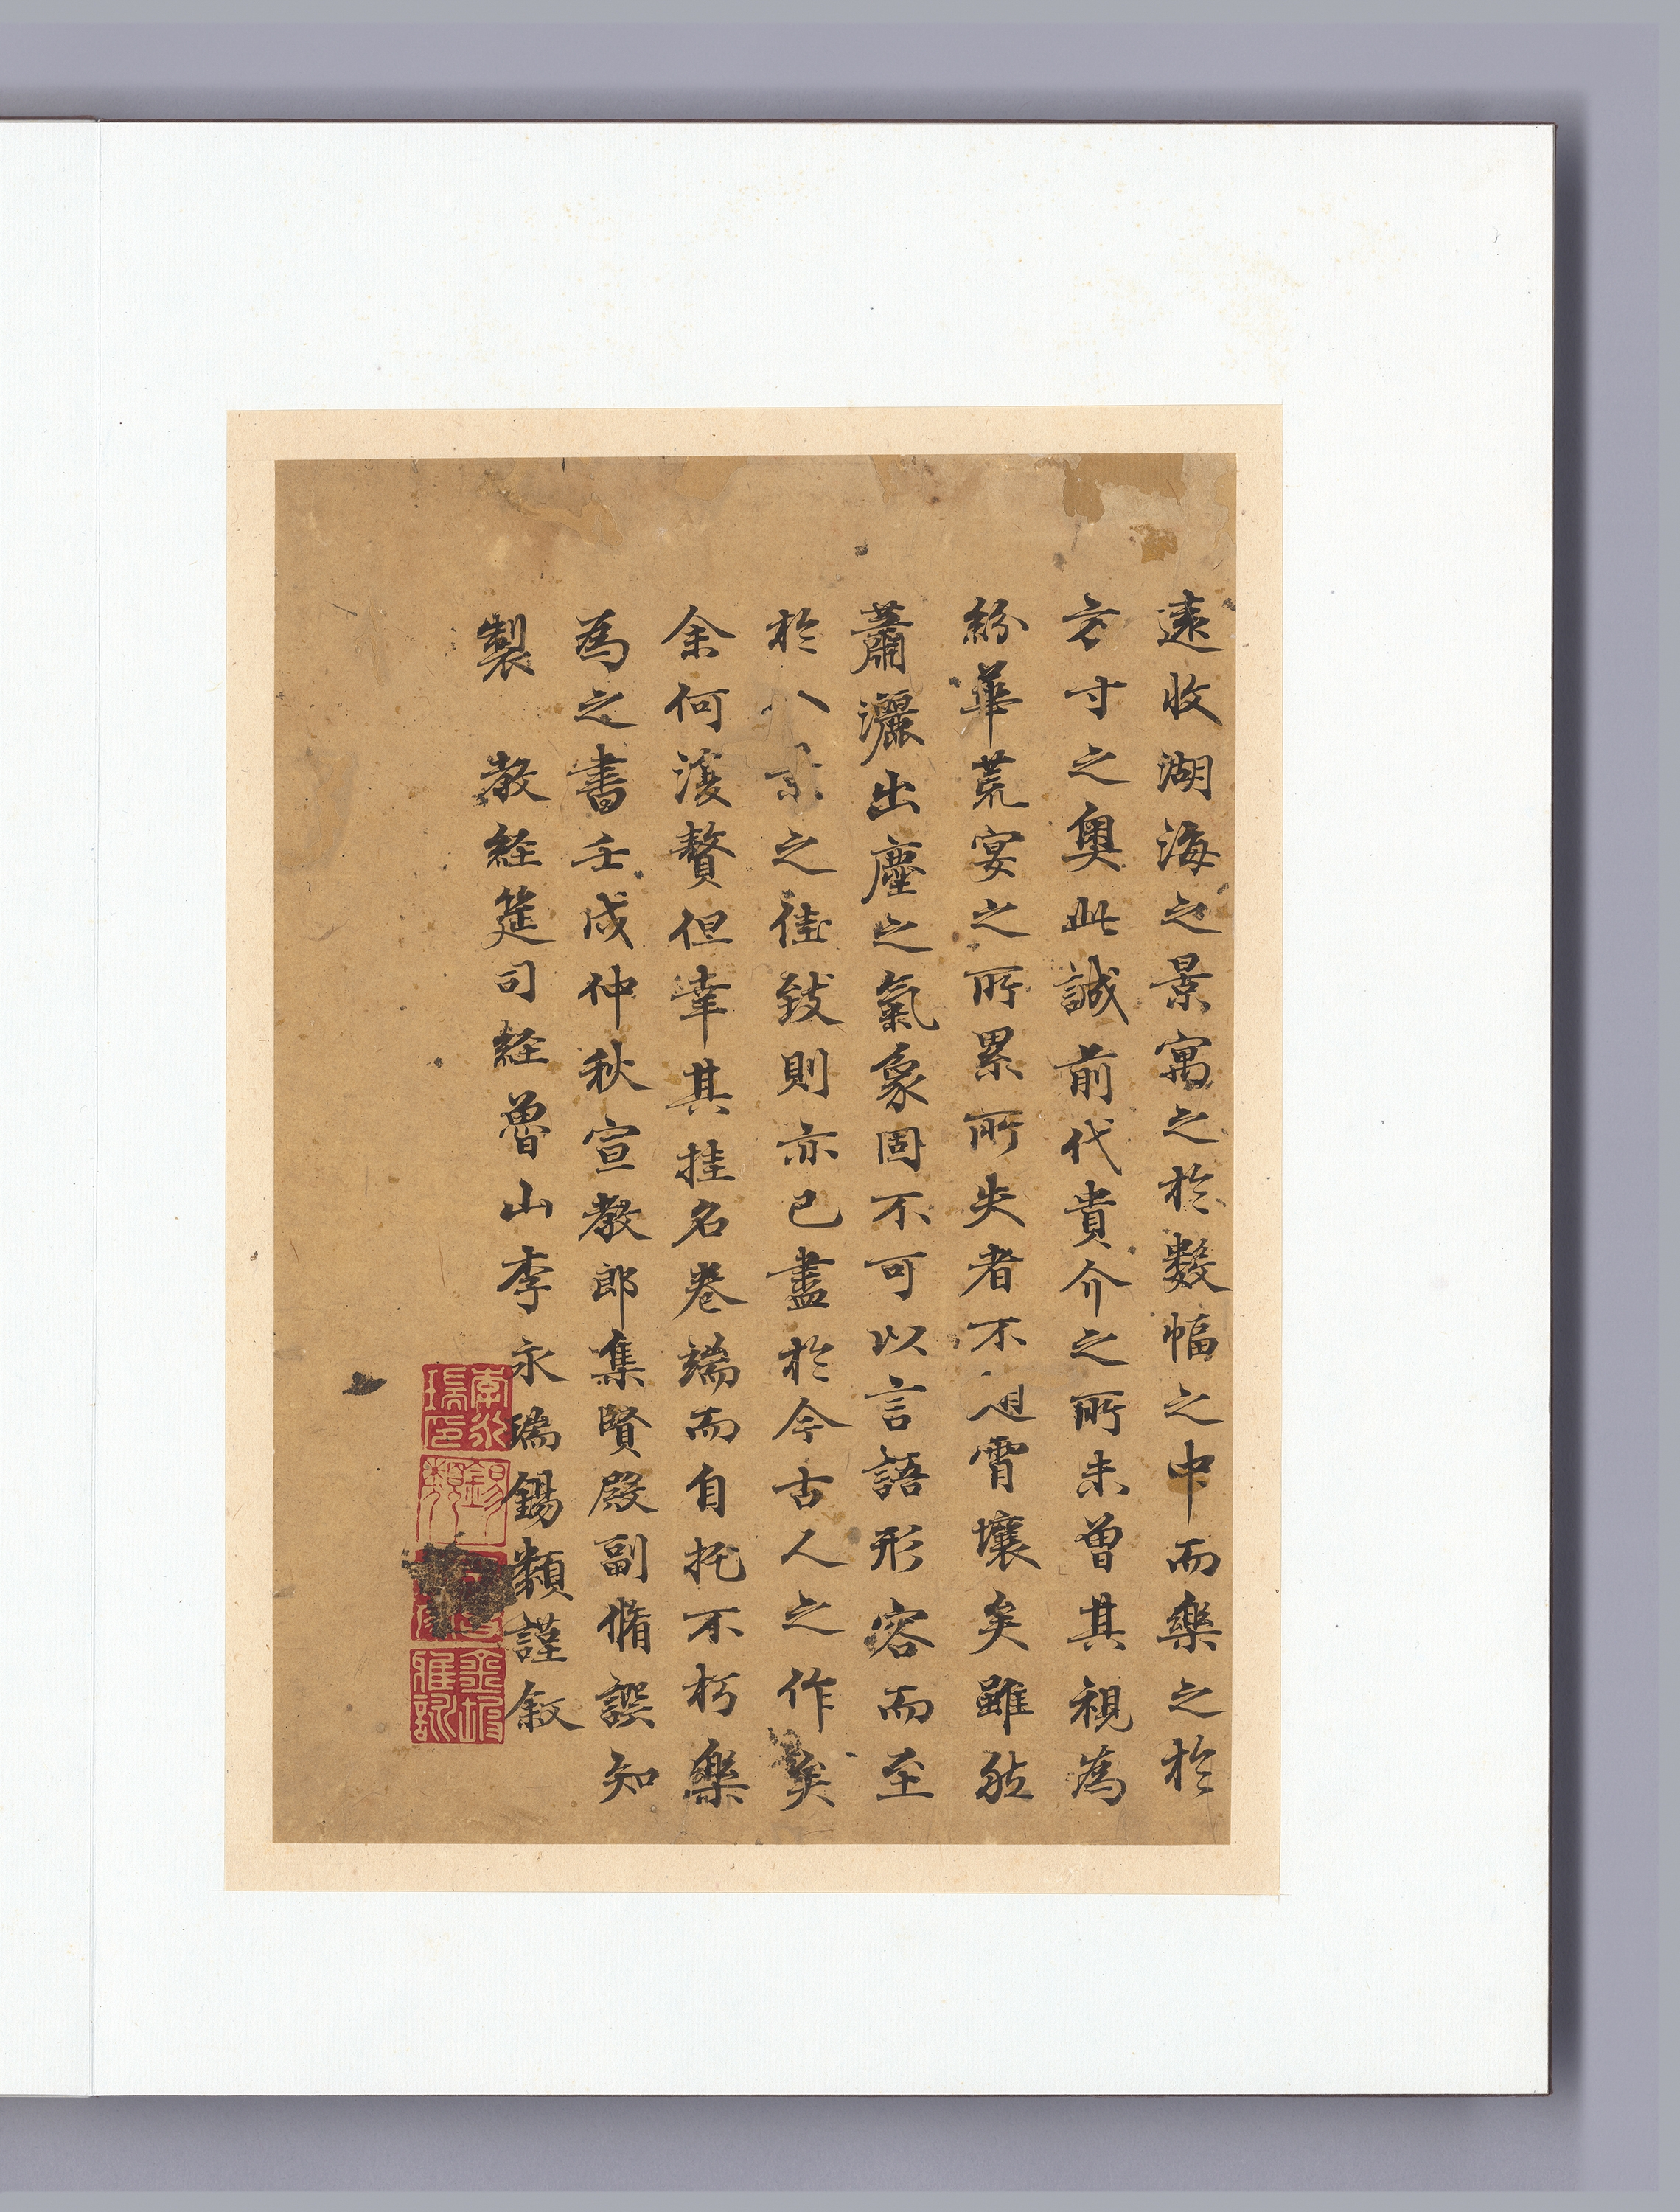 遠收湖海之景寓之於數幅之中而樂之於
方寸之奧此誠前代貴介之所未曾其視為
紛華荒宴之所累所失者不翅霄壤矣雖然
蕭灑出塵之氣象固不可以言語形容而至
於八景之佳致則亦已盡於今古人之作矣
余何復贅但幸其挂名卷端而自托不朽樂
為之書壬戌仲秋宣教郎集賢殿副脩譔知
製 教経筵司経魯山李永瑞錫類謹敘
李永瑞印
錫類